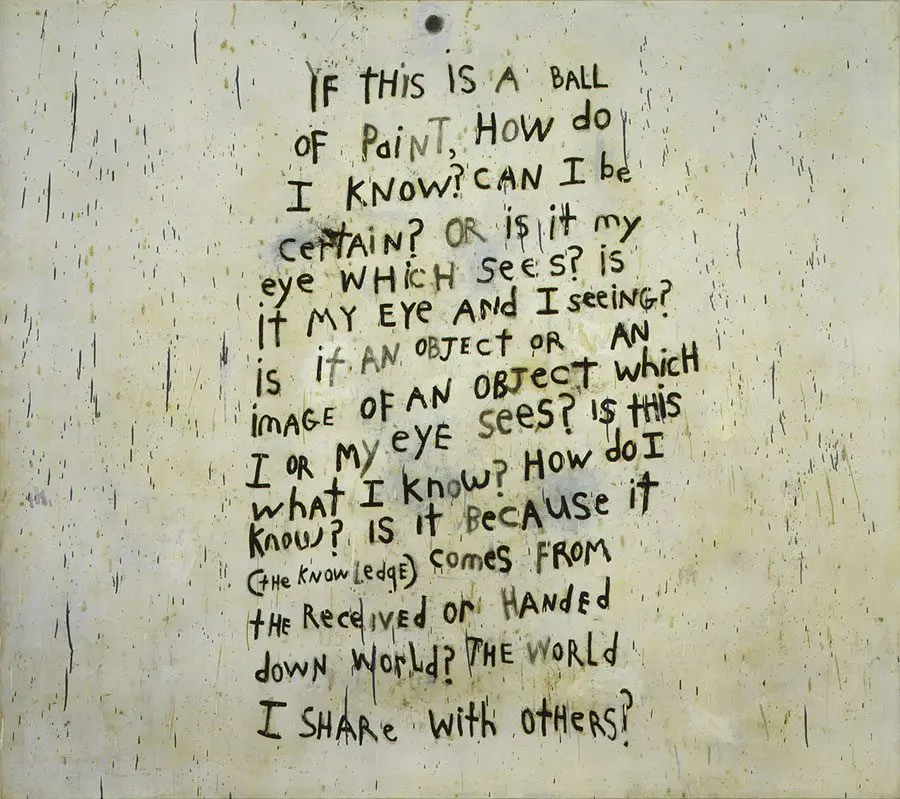 IF tHis IS A BALL
OF PaiNT, HOW do
I KNOW? CAN I be
CeRtAiN? OR is it my
eye WHicH sees? is
it MY EYe ANd I seeiNG?
is it AN OBJECt OR AN
iMAGE OF AN OBJect whicH
I OR My eyE sees? IS tHIS
whAt I know? HOW do I
know? IS it BecAUse it
(tHe KNOWLedgE) comes FROM
tHE ReceIVEd or HANded
down WorLd? THE WoRLd
I SHARe with otHeRs?